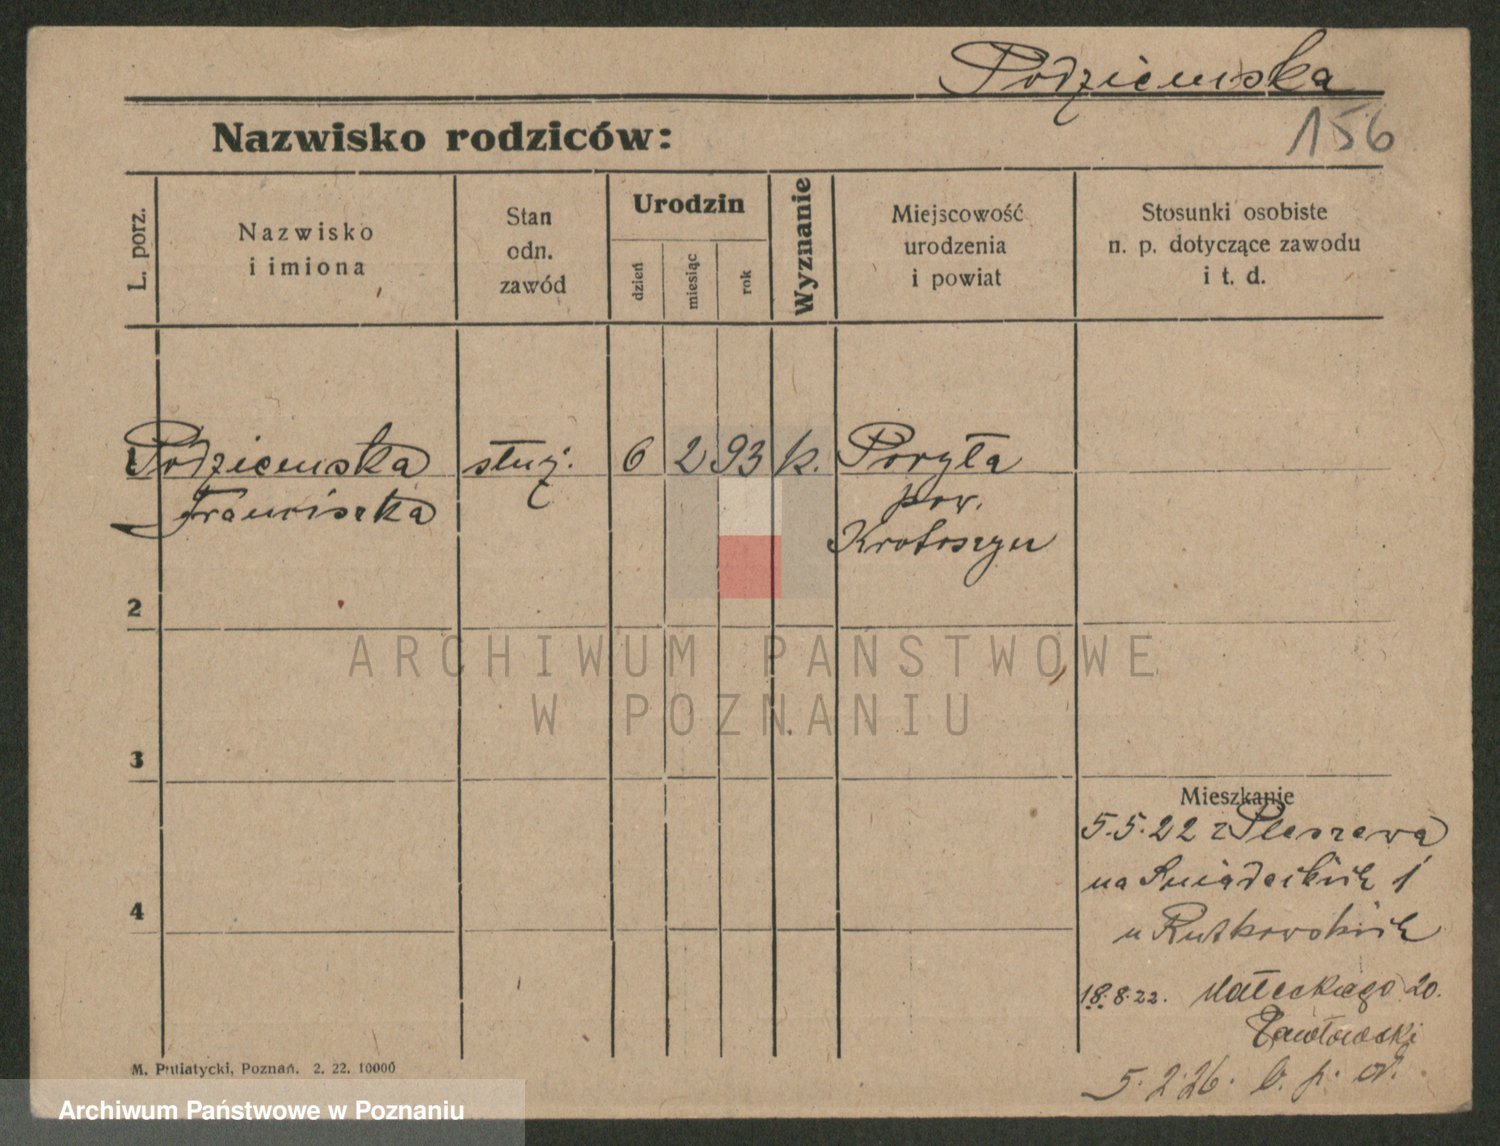 Podziemska
156
Nazwisko rodziców:
L. porz.
Nazwisko
i imiona
Stan
odn.
zawód
Urodzin
dzień
miesiąc
rok
Wyznanie
Miejscowość
urodzenia
i powiat
Stosunki osobiste
n. p. dotyczące zawodu
i t. d.
1 Podziemska służ. 6 2 93 k.
Franciszka
pow.
Krotoszyn
2
3
4
Mieszkanie
5.5.22 z Pleszewa
na Śniadeckich 1
u Rutkowskich
18.8.22. Małeckiego 20.
Pawłowski
5.2.26. b. p. od.
M. Putiatycki, Poznań. 2. 22. 10000
ARCHIWUM PAŃSTWOWE
W POZNANIU
Archiwum Państwowe w Poznaniu